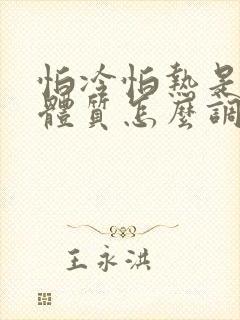 怕冷怕熱是
體質怎麼調
王永洪